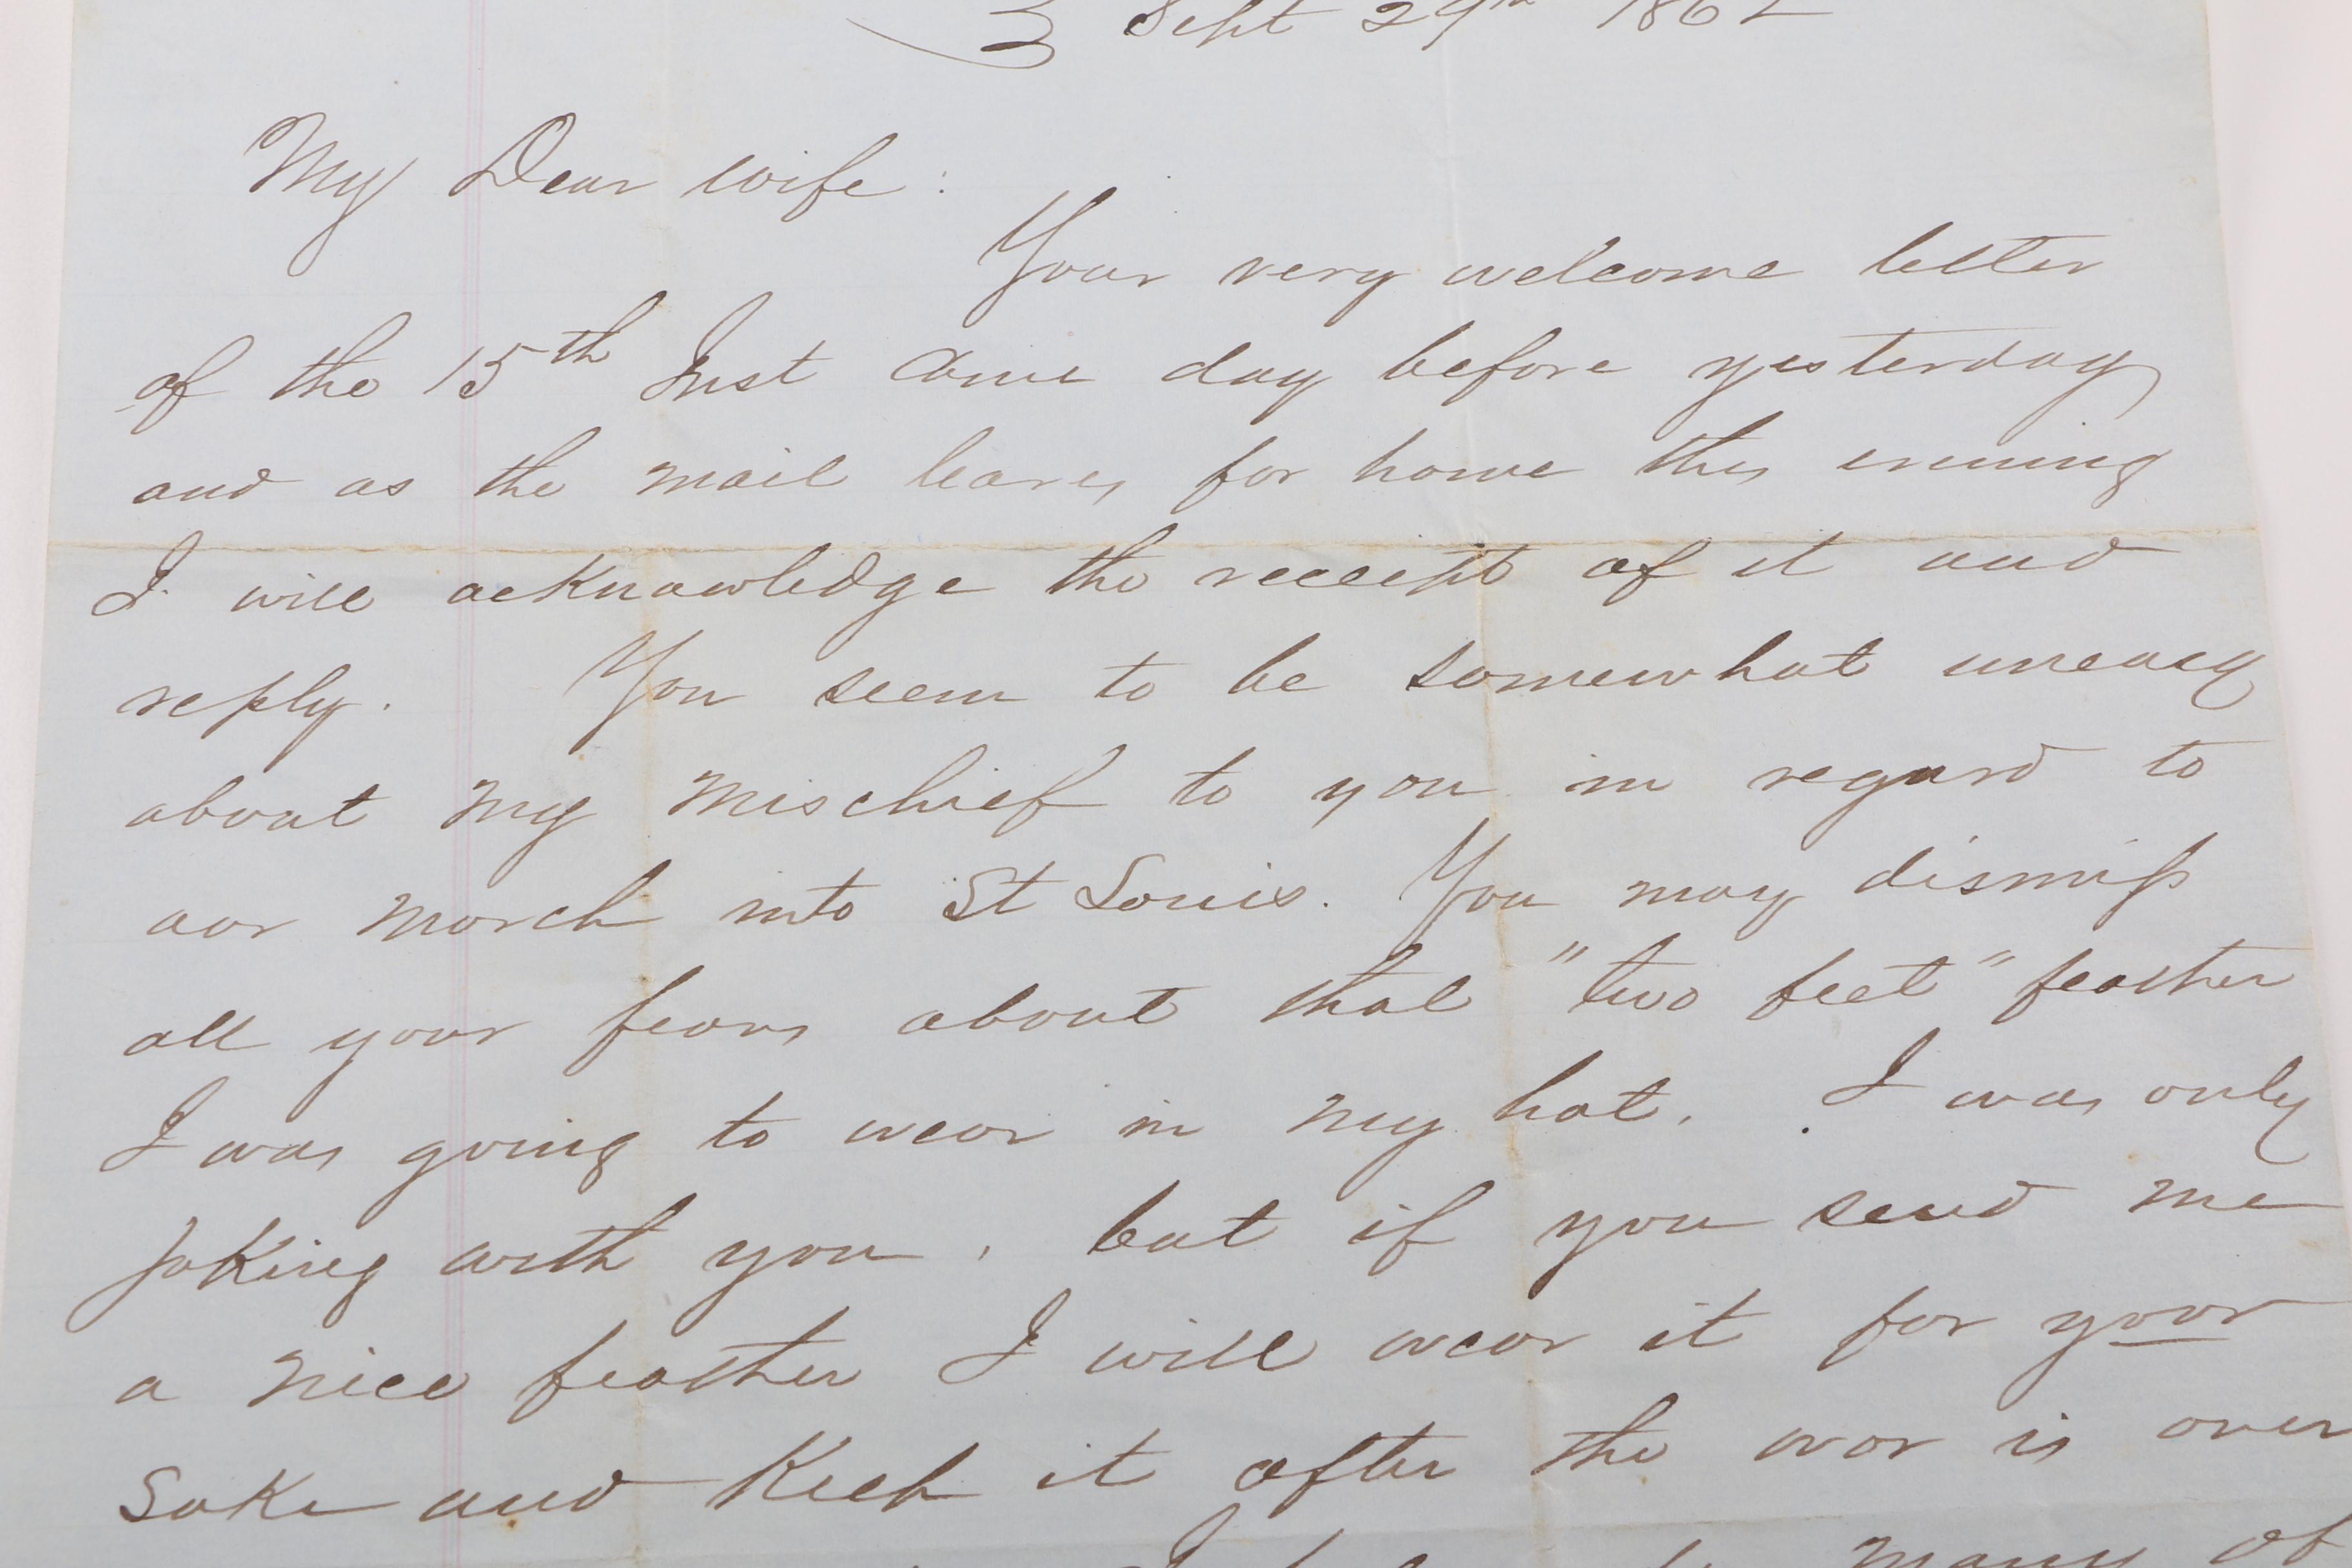 Sept 29th 1862
My Dear wife :
Your very welcome letter
of the 15th Inst came day before yesterday
and as the mail leaves for home this evening
I will acknowledge the receipt of it and
reply. You seem to be somewhat uneasy
about my mischief to you in regard to
our march into St Louis. You may dismiss
all your fears about that "two feet" feather
I was going to wear in my hat. I was only
joking with you, but if you send me
a nice feather I will wear it for your
sake and keep it after the war is over
many of